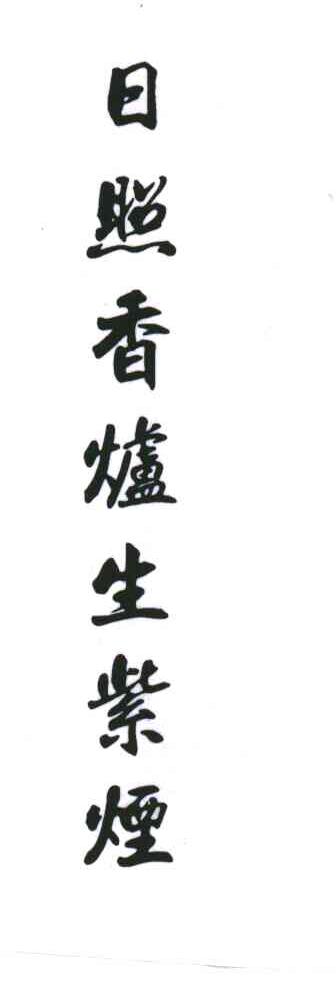 日照香爐生紫煙